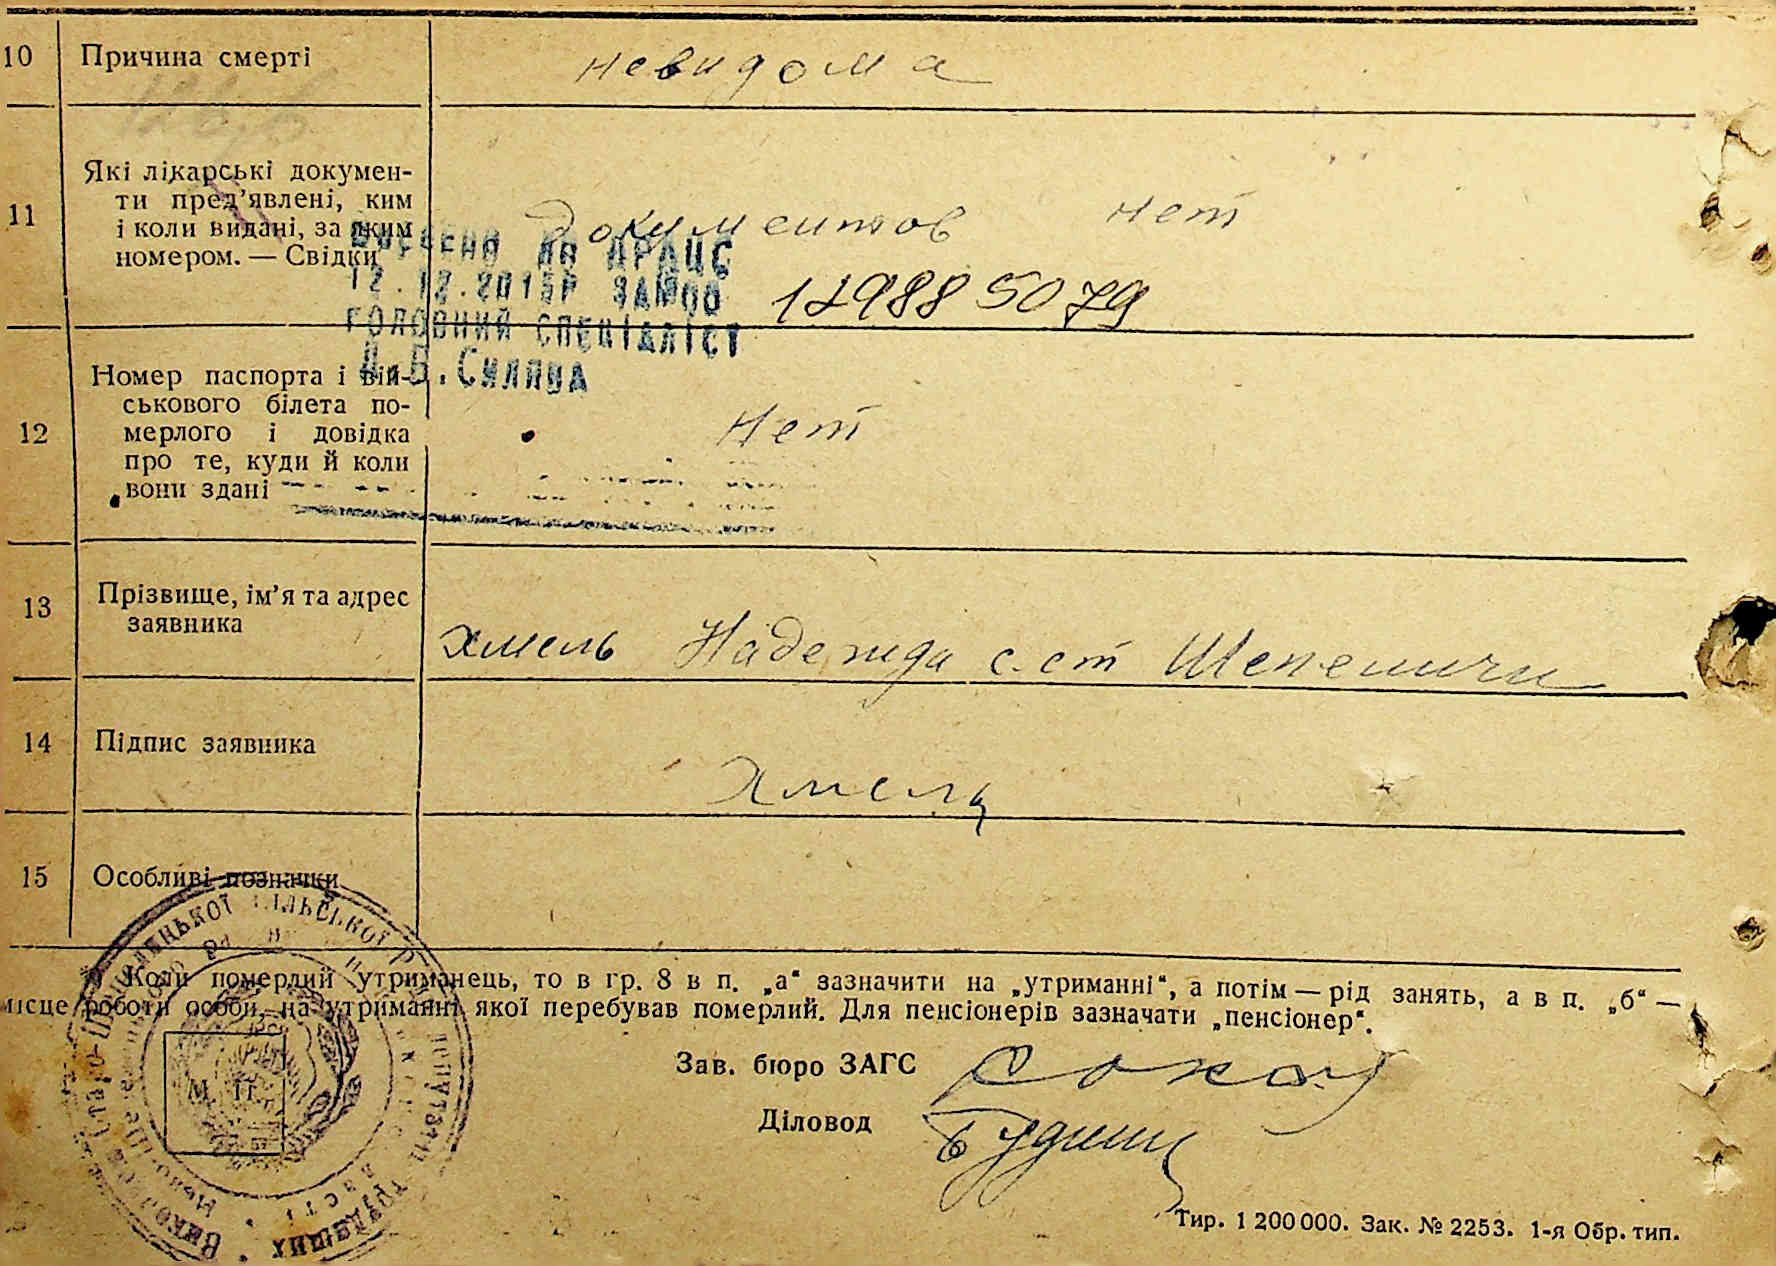 10 Причина смерті невидома
11 Які лікарські докумен-
ти пред’явлені, ким
і коли видані, за яким
номером. — Свідки
документов нет
Внесено до ДРАЦС
12.12.2013Р
головний спеціаліст
129885079
12 Номер паспорта і вій-
ськового білета по-
мерлого і довідка
про те, куди й коли
вони здані
нет
13 Прізвище, ім’я та адрес
заявника
Хмель Надежда с. ст Шепеличи
14 Підпис заявника
Хмель
15 Особливі позначки
Коли померлий утриманець, то в гр. 8 в п. „а“ зазначити на „утриманні“, а потім — рід занять, а в п. „б“ —
місце роботи особи, на утриманні якої перебував померлий. Для пенсіонерів зазначати „пенсіонер“.
М. П.
Зав. бюро ЗАГС
Діловод
Тир. 1 200 000. Зак. № 2253. 1-я Обр. тип.